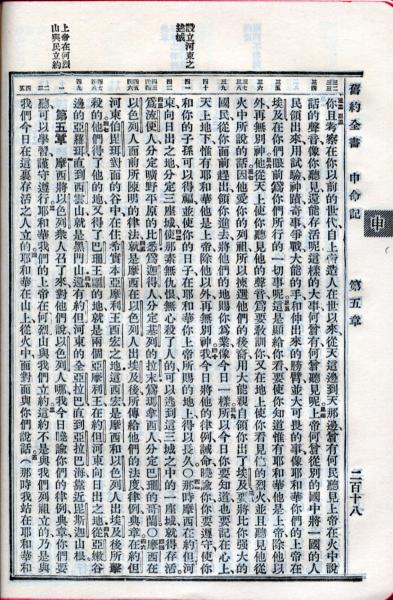 舊約全書 申命記 第五章 二百十八
申
設立河東之
逃城
上帝在何烈
山與民立約
你且考察在你以前的世代自上帝造人在世以來從天這邊到天那邊曾有何民聽見上帝在火中說
話的聲音像你聽見還能存活呢這樣的大事何曾有何曾聽見呢上帝何曾從別的國中將一國的人
民領出來用試驗神蹟奇事爭戰大能的手和伸出來的膀臂並大可畏的事像耶和華你們的上帝在
埃及在你們眼前爲你們所行的一切事呢這是顯給你看要使你知道惟有耶和華他是上帝除他以
外再無別神他從天上使你聽見他的聲音爲要教訓你又在地上使你看見他的烈火並且聽見他從
火中所說的話因他愛你的列祖所以揀選他們的後裔用大能親自領你出了埃及要將比你强大的
國民從你面前趕出領你進去將他們的地賜你爲業像今日一樣所以今日你要知道也要記在心上
天上地下惟有耶和華他是上帝除他以外再無別神我今日將他的律例誡命曉諭你你要遵守使你
和你的子孫可以得福並使你的日子在耶和華你上帝所賜的地上得以長久〇那時摩西在約但河
東向日出之地分定三座城使那素無仇恨無心殺了人的可以逃到這三城之中的一座城就得存活
爲流便人分定曠野平原的比悉爲迦得人分定基列的拉末爲瑪拿西人分定巴珊的哥蘭〇摩西在
以色列人面前所陳明的律法就是摩西在以色列人出埃及後所傳給他們的法度律例典章在約但
河東伯毘珥對面的谷中在住希實本亞摩利王西宏之地這西宏是摩西和以色列人出埃及後所擊
殺的他們得了他的地又得了巴珊王噩的地就是兩個亞摩利王在約但河東向日出之地從亞嫩谷
邊的亞羅珥直到西雲山就是黑門山還有約但河東的全亞拉巴直到亞拉巴海靠近毘斯迦山根
第五章 摩西將以色列衆人召了來對他們說以色列人哪我今日曉諭你們的律例典章你們要
聽可以學習謹守遵行耶和華我們的上帝在何烈山與我們立約這約不是與我們列祖立的乃是與
我們今日在這裏存活之人立的耶和華在山上從火中面對面與你們說話〈那時我站在耶和華和